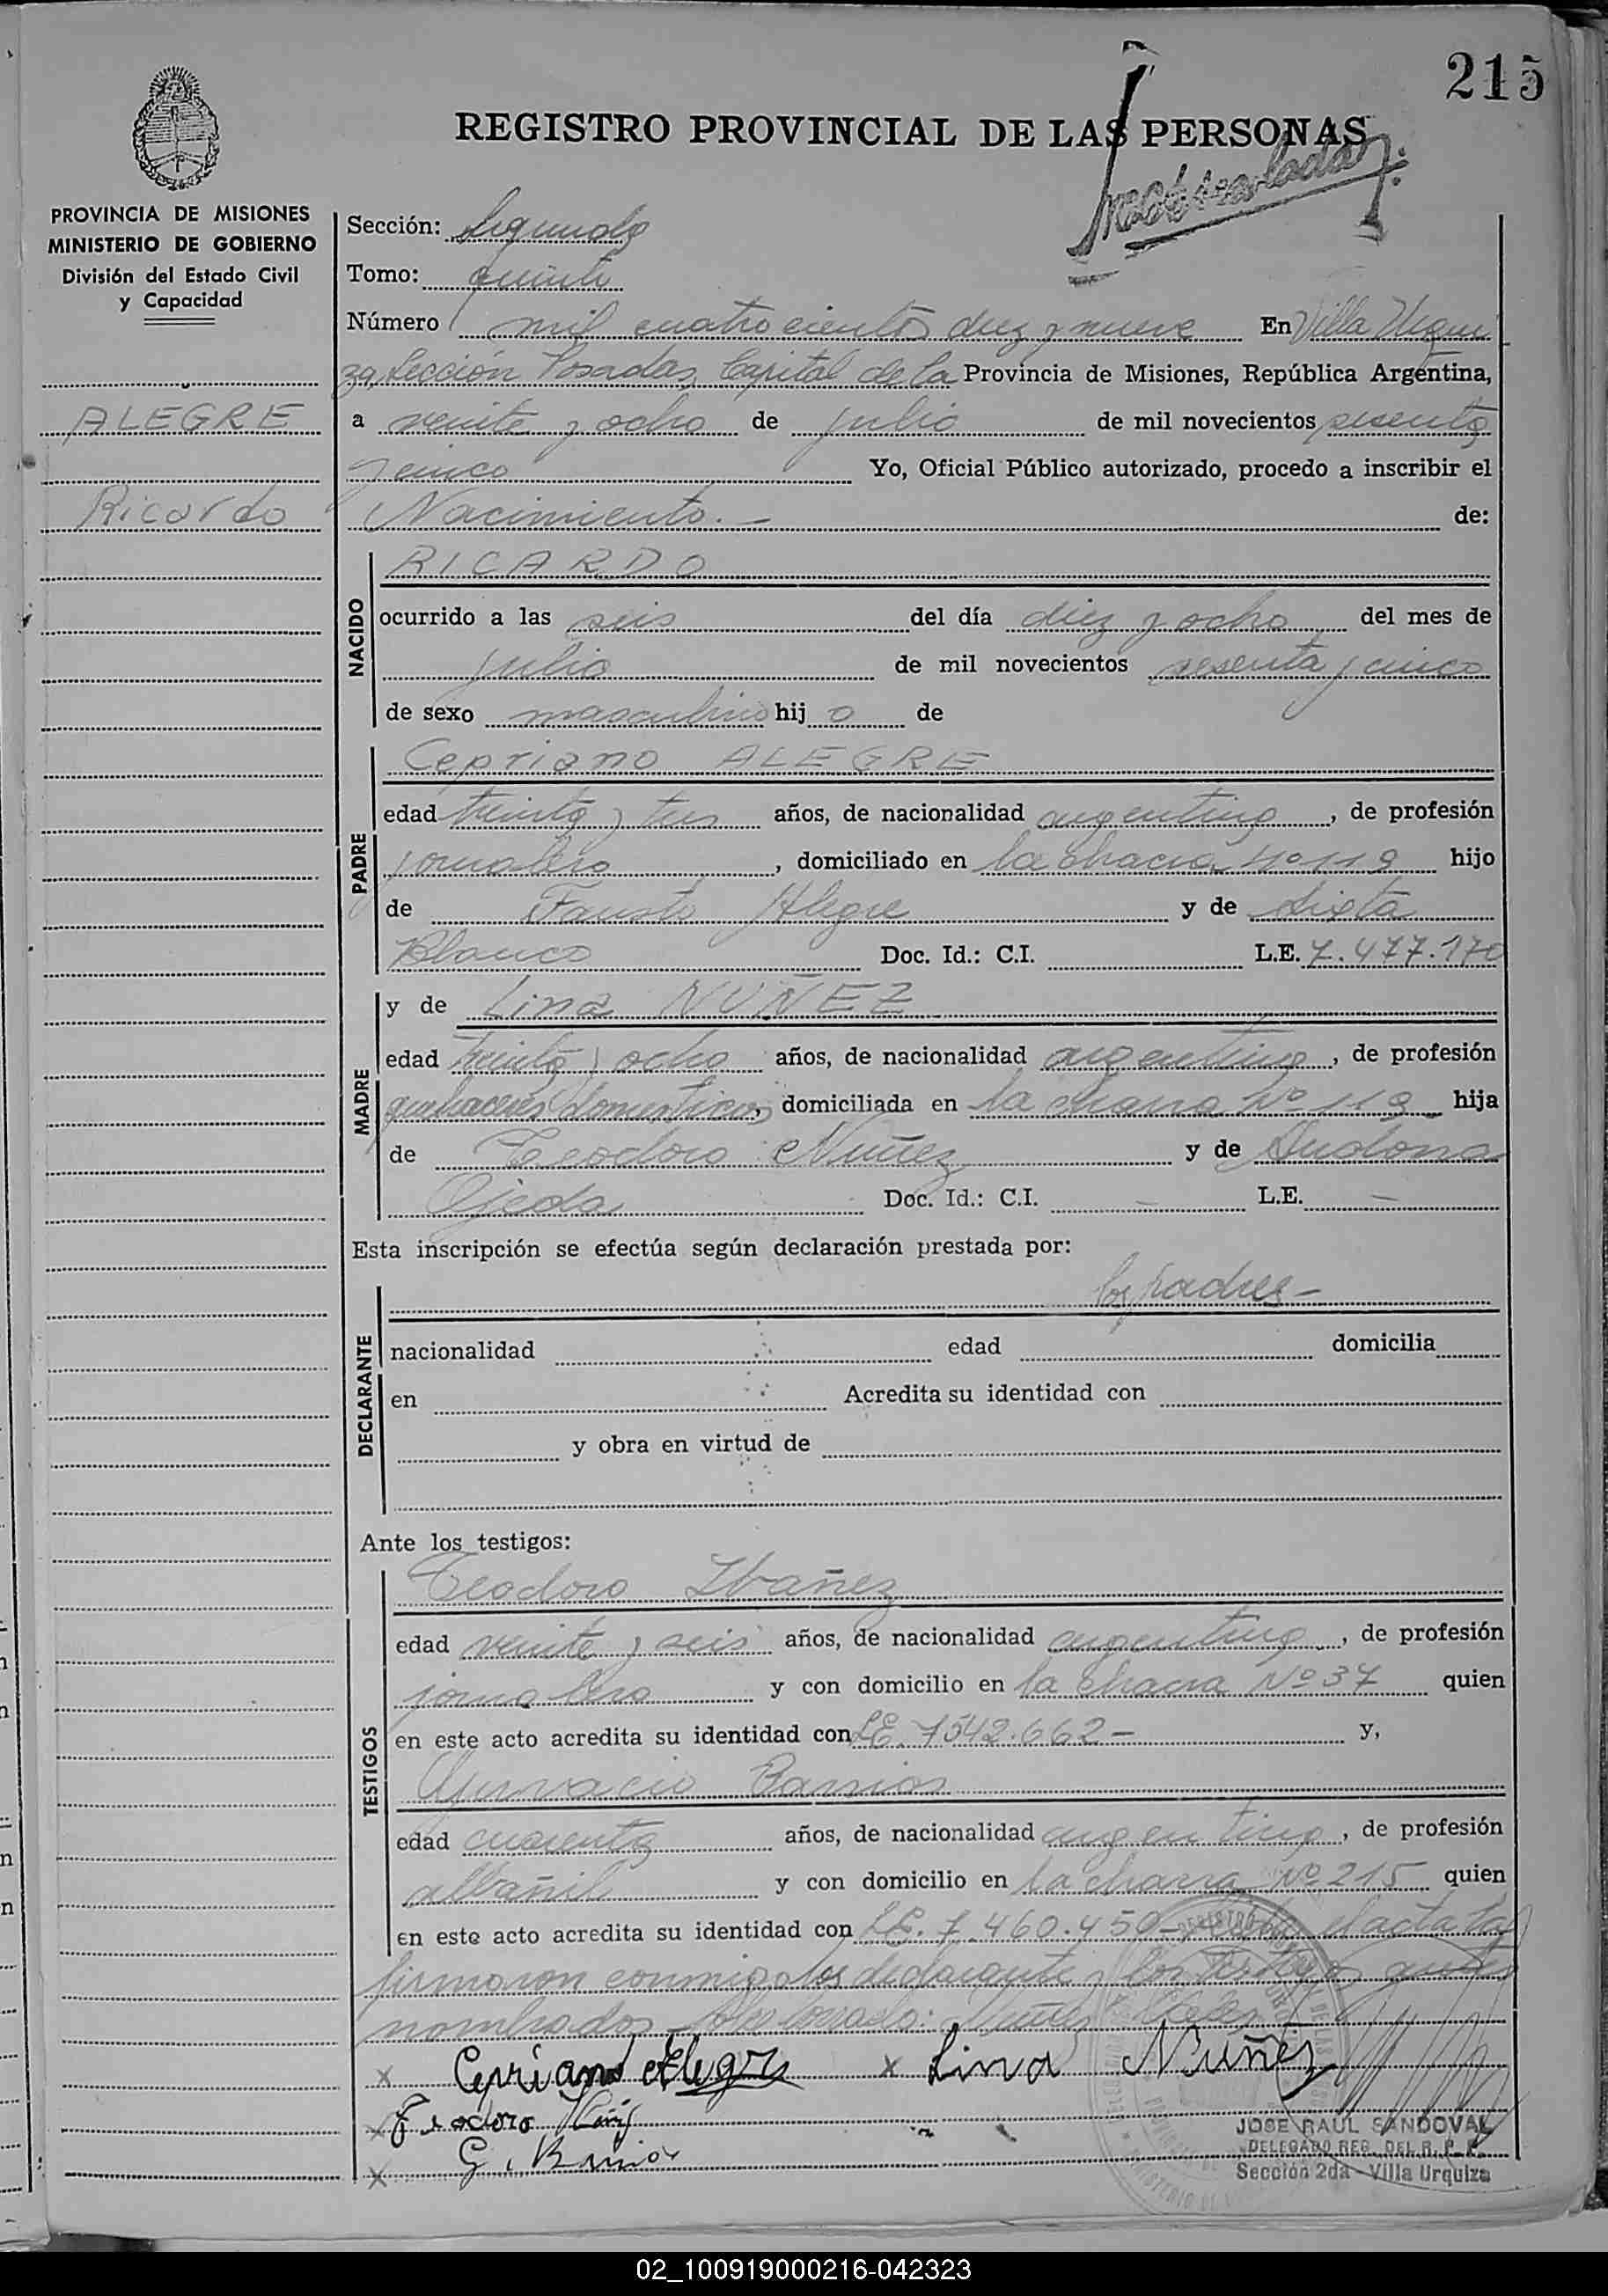 215
REGISTRO PROVINCIAL DE LAS PERSONAS
PROVINCIA DE MISIONES
MINISTERIO DE GOBIERNO
División del Estado Civil
y Capacidad
ALEGRE
Ricardo
Sección: Segunda
Tomo: quinto
Número mil cuatrocientos diez y nueve En Villa Urqui
za, Sección Posadas, Capital de la Provincia de Misiones, República Argentina,
a veinte y ocho de julio de mil novecientos sesenta
y cinco Yo, Oficial Público autorizado, procedo a inscribir el
Nacimiento.- de:
NACIDO
RICARDO
ocurrido a las seis del día diez y ocho del mes de
julio de mil novecientos sesenta y cinco
de sexo masculino hijo de
PADRE
Cepriano ALEGRE
edad treinta y tres años, de nacionalidad argentino, de profesión
jornalero, domiciliado en la chacra Nº 119 hijo
de Fausto Alegre y de Sixta
Blanco Doc. Id.: C.I. L.E. 7.477.170
MADRE
y de Lina NUÑEZ
edad treinta y ocho años, de nacionalidad argentina, de profesión
quehaceres domesticos, domiciliada en la chacra Nº 119 hija
de Teodoro Nuñez y de
Ojeda Doc. Id.: C.I. — L.E. —
Esta inscripción se efectúa según declaración prestada por:
DECLARANTE
los padres-
nacionalidad edad domicilia
en Acredita su identidad con
y obra en virtud de
Ante los testigos:
TESTIGOS
Teodoro Ibañez
edad veinte y seis años, de nacionalidad argentino, de profesión
jornalero y con domicilio en la chacra Nº 37 quien
en este acto acredita su identidad con LE. 7542.662- y,
Gervacio Barrios
edad cuarenta años, de nacionalidad argentino, de profesión
albañil y con domicilio en la chacra Nº 215 quien
en este acto acredita su identidad con LE. 7.460.450- el acta la
firmaron conmigo los declarantes y los testigos antes
nombrados-
x Cepriano Alegre x Lina Nuñez
x Teodoro Ibañez
x G. Barrios
JOSE RAUL SANDOVAL
DELEGADO REG. DEL R. P. P.
Sección 2da - Villa Urquiza
02_100919000216-042323